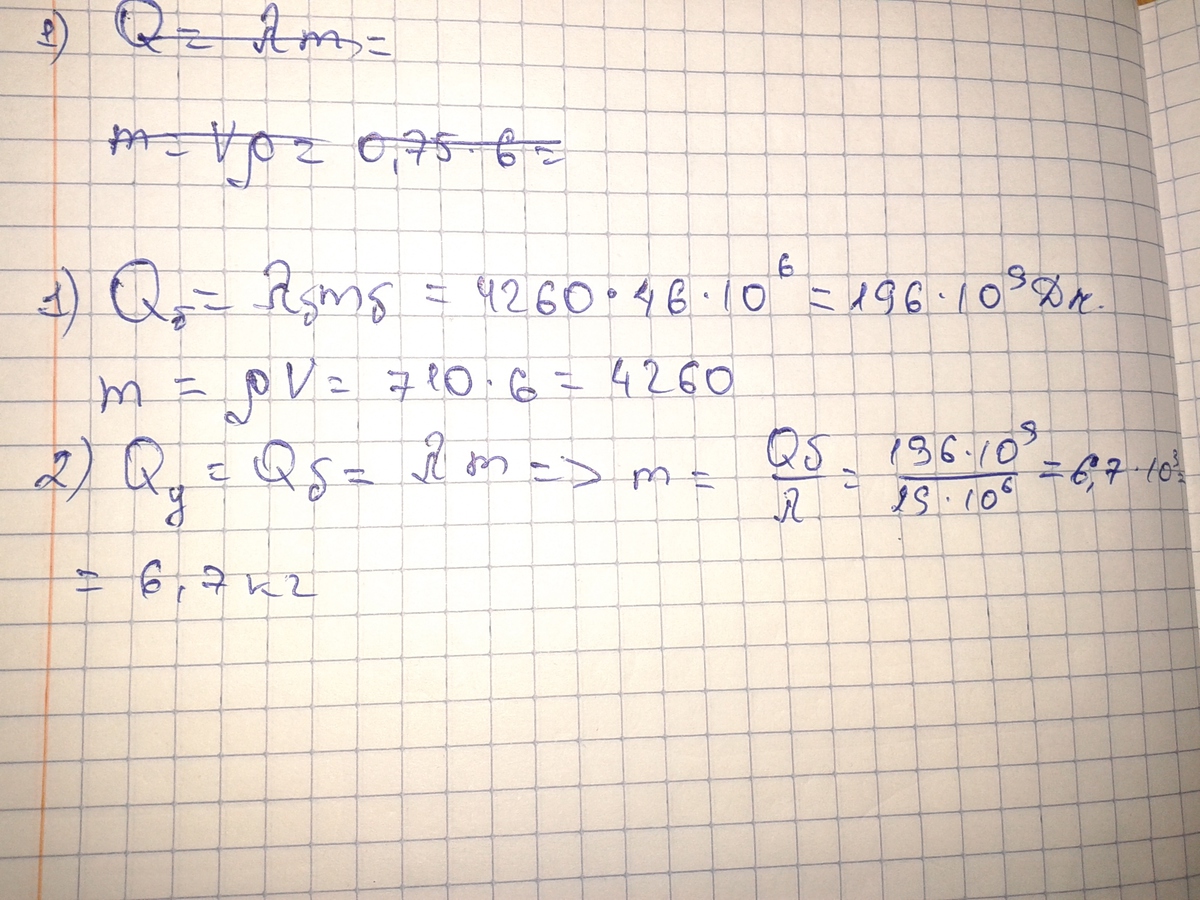 1) Q = λm =
m = Vρ = 0,75 · 6 =
1) Qб = λбmб = 4260 · 46 · 10⁶ = 196 · 10⁹ Дж.
m = ρV = 710 · 6 = 4260
2) Qу = Qб = λm => m = Qб/λ = 196·10⁹/29·10⁶ = 6,7 · 10³ =
= 6,7 кг